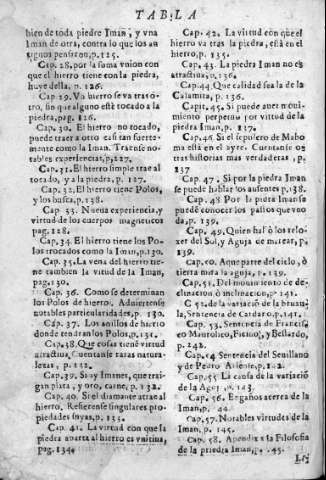 TABLA
bien de toda piedre Iman, y vna
Iman de otra, contra lo que los an
tiguos pensaron, p. 125.
Cap. 28. por la suma vnion con
que el hierro tiene con la piedra,
huye della. p. 126.
Cap. 29. Vn hierro se va tras o-
tro, sin que alguno esté tocado a la
piedra, pag. 126.
Cap. 30. El hierro no tocado,
puede traer a otro casi tan fuerte-
mente como la Iman. Traense no-
tables experiencias, p, 127.
Cap. 31. El hierro simple trae al
tocado, y a la piedra, p. 127.
Cap. 32. El hierro tiene Polos,
y los busca, p. 138.
Cap. 33. Nueua experiencia, y
virtud de los cuerpos magneticos
pag. 128.
Cap. 34. El hierro tiene los Po-
los trocados como la Iman, p. 130.
Cap. 35. La vena del hierro tie-
ne tambien la vitud de la Iman,
pag. 130.
Cap. 36. Como se determinan
los Polos de hierro. Aduiertense
notables particularidades, p. 130.
Cap. 37. Los anillos de hierro
donde tendran los Polos, p. 131.
Cap. 38. Que cosas tiené virtud
atractiua, Cuentanse raras natura-
lezas, p, 132.
Cap. 39. Si ay Imanes, que trai-
gan plata, y oro, carne, p. 132.
Cap. 40. Si el diamante atrae al
hierro, Refierense singulares pro-
piedades suyas, p. 133.
Cap. 41. La virtud con que la
piedra aparta al hierro es vnitiua,
pag. 134.
Cap. 42. La virtud con que el
hierro va tras la piedra, está en el
hierro, p. 135.
Cap. 43. La piedra Iman no es
atractiua, p. 136.
Cap. 44. Que calidad sea la de la
Calamita, p. 136.
Capit. 45. Si puede auer moui-
miento perpetuo por virtud de la
piedra Iman, p. 137.
Cap. 46. Si el sepulcro de Maho
ma está en el ayre. Cuentanse o-
tras historias mas verdaderas, p.
137
Cap. 47. Si por la piedra Iman
se puede hablar los ausentes p. 138.
Cap. 48 Por la piedra Iman se
puedé conocer los passos que vno
da, p. 139.
Cap. 49. Quien halló los relo-
xes del Sol, y Aguja de marear, p.
139.
Cap. 50. A que parte del cielo, ó
tierra mira la aguja, p. 139.
Cap. 51. Del mouimiento de de-
clinacion ò inclinacion, p. 141.
C 52. de la variació de la bruxu-
la, Sentencia de Cardaro p. 141.
Cap. 53. Sentencia de Francis-
co Maurolico, Ficino, y Besardo,
p. 142.
Cap. 54 Sentencia del Seuillano
y de Pedro
Cap. 55 La causa de la variació
de la Aguj. p. 143
Cap. 56. Engaños acerca de la
Iman, p. 44
Cap. 57. Notables virtudes de la
Iman, p. 145.
Cap. 58. Apendix a la Filosofia
de la piedra Iman, p. 45.